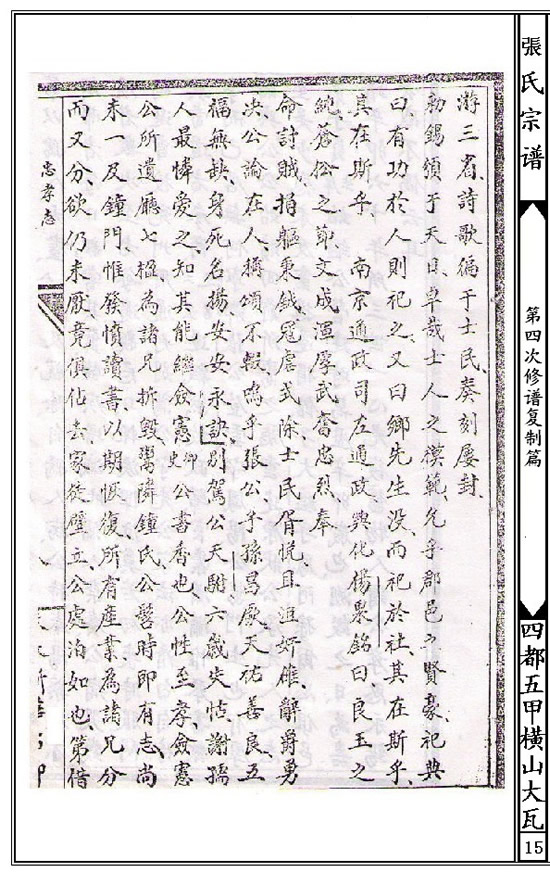 游三省、詩歌徧于士民、奏刻屢封、
勅錫頒于天日、卓哉士人之模範、允乎郡邑之賢豪、祀典
曰、有功於人則祀之、又曰鄉先生没而祀於社、其在斯乎、
其在斯乎、南京通政司左通政、興化楊果銘曰、良玉之
純、蒼松之節、文成渾厚、武奮忠烈、奉
命討賊、捐軀秉鉞、冦虐式除、士民胥悦、耳逆奸雄、辭爵勇
决、公論在人、稱頌不輟、嗚乎張公、子孫昌厥、天祐善良、五
福無缺、身死名揚、安安永訣、别駕公天駙、六歲失怙、謝孺
人最憐愛之、知其能繼僉憲御史公書香也、公性至孝、僉憲
公所遺廳七楹、為諸兄拆毁、鬻隣鍾氏、公髫時即有志、尚
未一及鍾門、惟發憤讀書、以期恢復、所有產業、為諸兄分
而又分、欲仍未厭、竟俱佔去、家徒壁立、公處泊如也、第借
忠孝志
張氏宗谱
第四次修谱复制篇
四都五甲横山大瓦
15